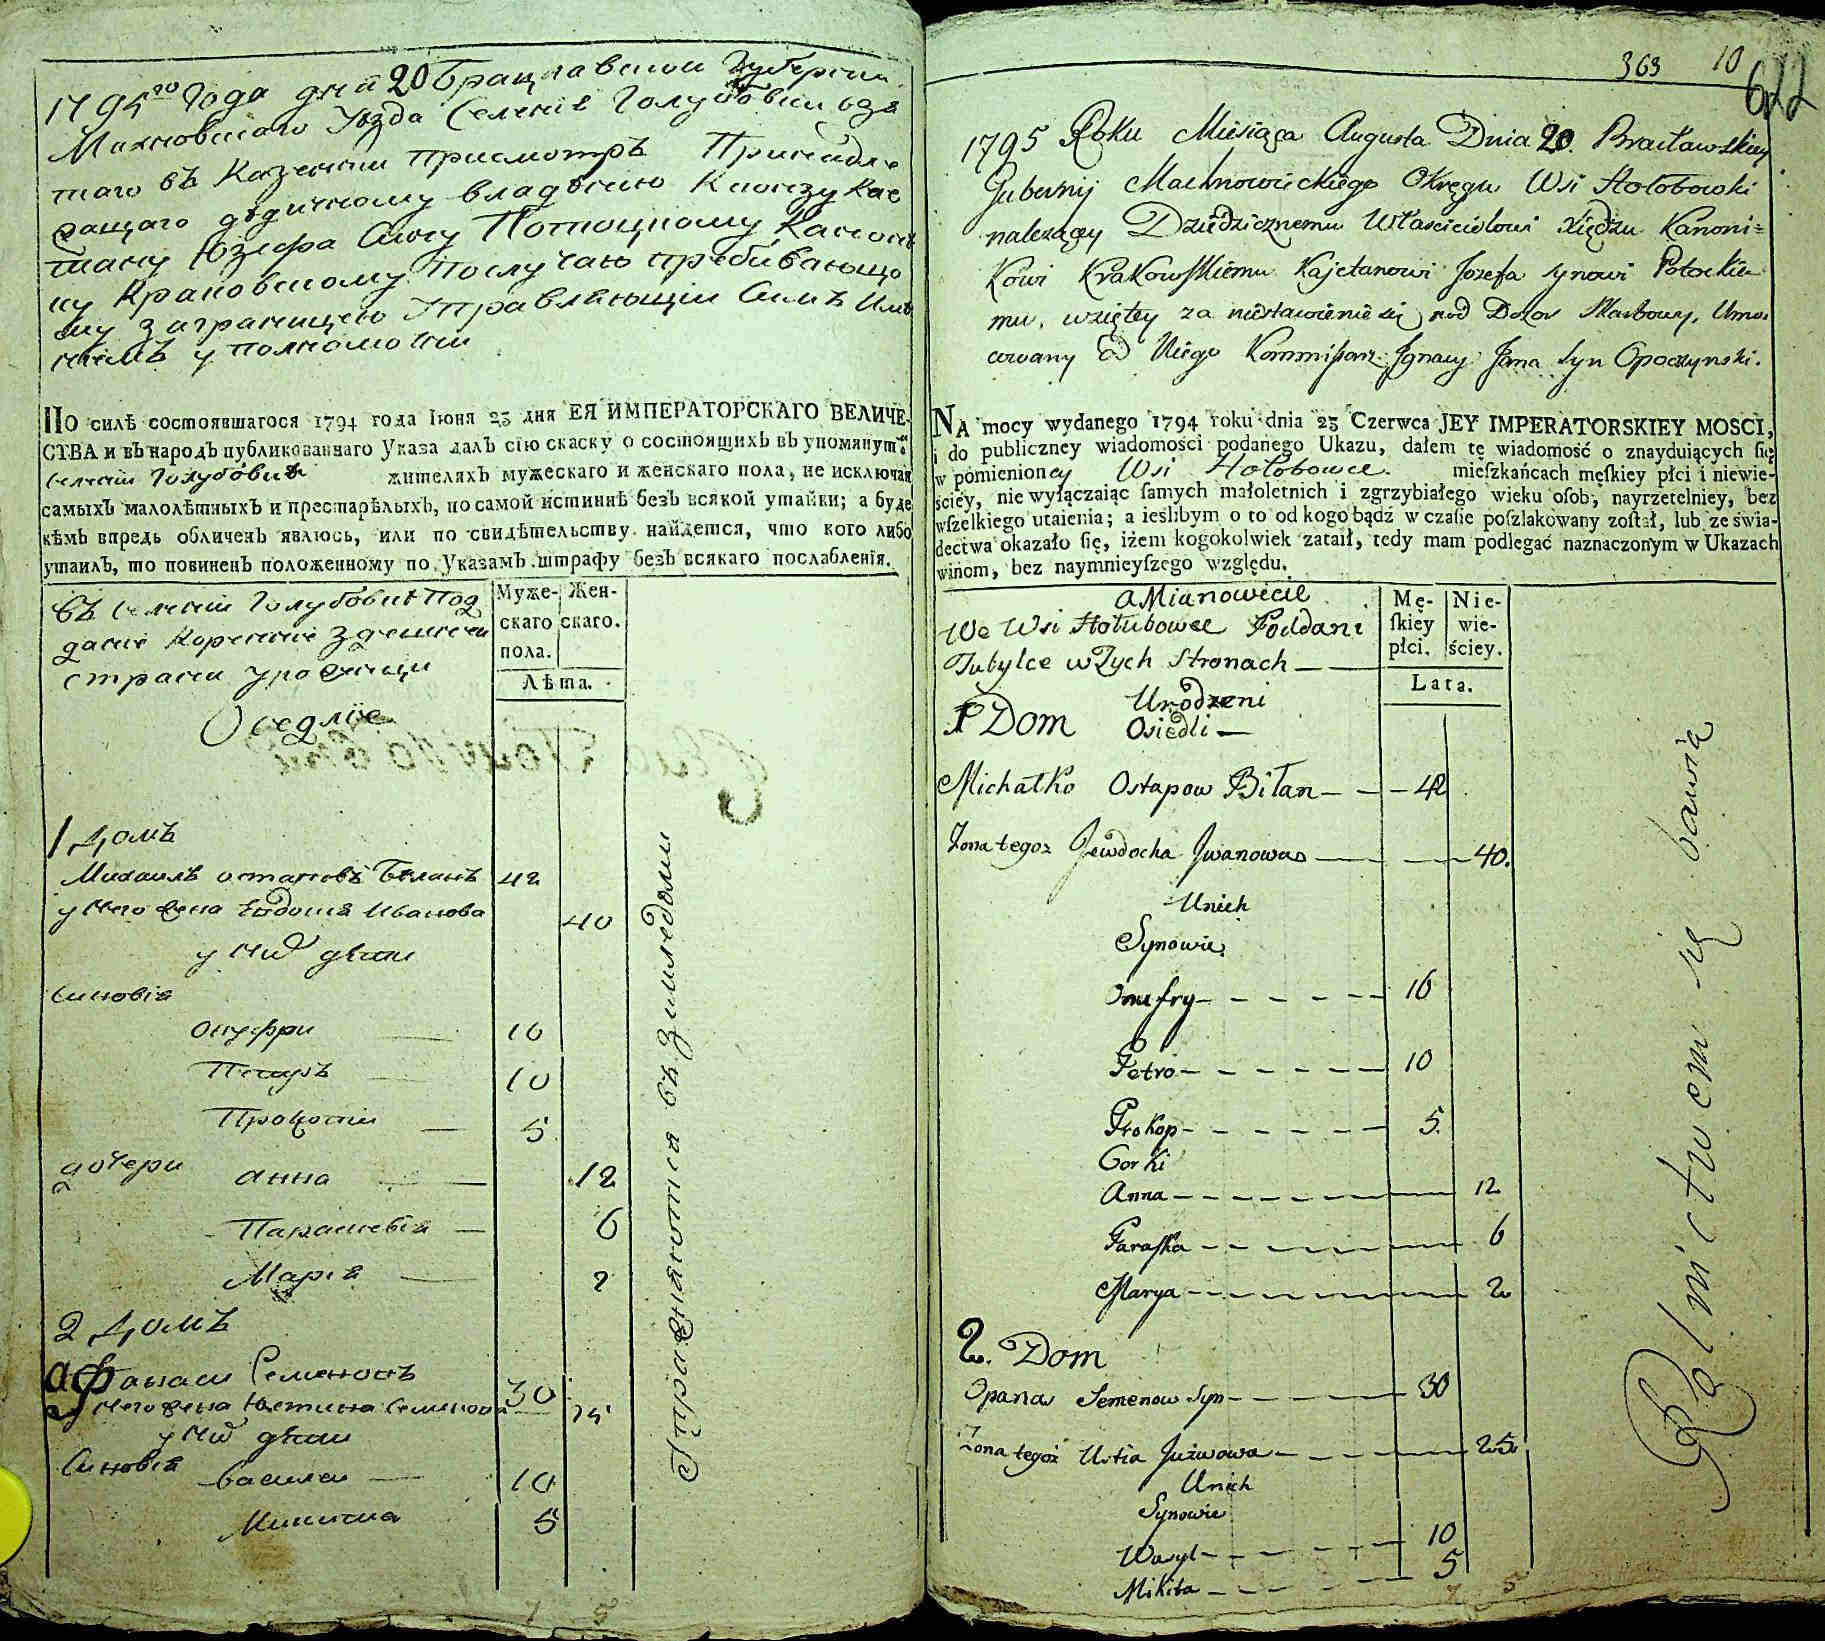 1794го года дня 20 Брацлавской Губернии
Махновского Уезда Селения Голубовки взя
таго въ Казенный присмотръ Принадле
жащаго дѣдичному владѣнию Ксонзу Кае
тану Юзефа Сыну Потоцкому Канони
ку Краковскому По случаю пребивающо
му заграницею Управляющий Симъ Име
ниемъ уполномочен
ПО силѣ состоявшагося 1794 года Iюня 23 дня ЕЯ ИМПЕРАТОРСКАГО ВЕЛИЧЕ-
СТВА и въ народъ публикованнаго Указа далъ сiю скаску о состоящихъ въ упомянут
селении Голубовке жителяхъ мужескаго и женскаго пола, не исключая
самыхъ малолѣтныхъ и престарѣлыхъ, по самой истиннѣ безъ всякой утайки; а буде
кѣмъ впредь обличенъ явлюсь, или по свидѣтельству найдется, что кого либо
утаилъ, то повиненъ положенному по Указамъ штрафу безъ всякаго послабленiя.
въ Селении Голубовке Под
дание Коренние Здешней
страни уроженци
Оседлие
Муже-
скаго
пола.
Жен-
скаго.
Лѣта.
1 Домъ
Михаилъ Остаповъ Беланъ 42
у него жена Евдокия Иванова 40
у них дети
Синовія
Онуфри 16
Петръ 10
Прокопий 5
дочери Анна 12
Параскевия 6
Мария 2
2 Домъ
Афанасий Семеновъ 30
у него жена Юстина 25
у них дети
Синовія Василей 10
Микита 5
Упражняются въ Земледелии
363 10
622
1795 Roku Miesiąca Augusta Dnia 20. Bracławskiey
Gubernij Machnowieckiego Okręgu Wsi Hołobowki
należącey Dziedzicznemu Właścicielowi Xiędzu Kanoni=
kowi Krakowskiemu Kajetanowi Jozefa synowi Potockie
mu, wziętey za niestawienie się pod Dozor Skarbowy, Umo
cowany Od Niego Kommisarz Ignacy Jana Syn Opoczynski.
NA mocy wydanego 1794 roku dnia 23 Czerwca JEY IMPERATORSKIEY MOSCI,
i do publiczney wiadomości podanego Ukazu, dałem tę wiadomość o znayduiących ſię
w pomienioney Wsi Hołobowce. mieſzkańcach męſkiey płci i niewie-
ściey, nie wyłączaiąc ſamych małoletnich i zgrzybiałego wieku oſob, nayrzetelniey, bez
wſzelkiego utaienia; a ieślibym o to od kogo bądź w czaſie poſzlakowany zoſtał, lub ze świa-
dectwa okazało ſię, iżem kogokolwiek zataił, tedy mam podlegać naznaczonym w Ukazach
winom, bez naymnieyſzego względu.
a Mianowicie
We Wsi Hołubowce Poddani
Tubylce w Tych Stronach
Urodzeni
1 Dom Osiedli
Mę-
ſkiey
płci.
Nie-
wie-
ściey.
Lata.
Michałko Ostapow Biłan 42
Żona tegoż Jewdocha Iwanowa 40.
U nich
Synowie
Onufry 16
Petro 10
Prokop 5.
Corki
Anna 12
Paraſka 6
Marya 2
2. Dom
Opanas Semenow Syn 30
Żona tegoż Ustia 25
U nich
Synowie
Wasyl 10
Mikita 5
Rolnictwem się bawią
7 5
7 5